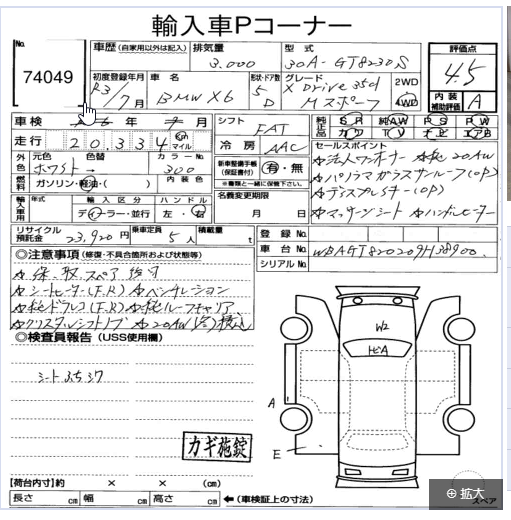 輸入車Pコーナー
No. 74049
車歴 (自家用以外は記入) 排気量 3.000 型式 30A-GT8230S 評価点 4.5
初度登録年月 R3/7月 車名 BMW X6 形状・ドア数 5 D グレード X Drive 35d Mスポーツ 2WD 4WD 内装補助評価 A
車検 年 月 シフト FAT 純正品 SR 純AW PS PW
走行 20.334 km マイル 冷房 AAC カワ TV ナビ エアB
外色 元色 ホワイト 色替 → カラーNo. 300 新車整備手帳(保証書付) 有・無 ※書類と一緒に保管下さい。
セールスポイント
☆法人ワンオーナー ☆純20AW
☆パノラマガラスサンルーフ(OP)
☆ディスプレイキー(OP)
☆マッサージシート ☆ハンドルヒーター
燃料 ガソリン・軽油・( ) 内装色
名義変更期限 月 日
輸入車用 年式 輸入区分 ディーラー・並行 ハンドル 左・右
リサイクル預託金 23,920円 乗車定員 5人 積載量 t
登録No.
車台No. WBAGT820209H38900
シリアルNo.
◎注意事項 (修復・不具合箇所および状態等)
☆保、取、スペア 後寸
☆シートヒーター(F.R) ☆ベンチレーション
☆純ドラレコ(F.R) ☆純ルーフキャリア
☆クリスタルシフトノブ ☆20AW
◎検査員報告 (USS使用欄)
W2
A
E
カギ施錠
【荷台内寸】約 × × (cm)
長さ cm 幅 cm 高さ cm ←(車検証上の寸法) スペア
拡大